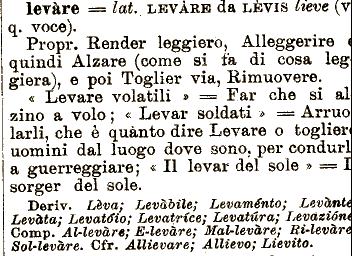 levàre = lat. LEVÀRE da LÈVIS lieve (v
q. voce).
Propr. Render leggiero, Alleggerire e
quindi Alzare (come si fa di cosa leg-
giera), e poi Toglier via, Rimuovere.
« Levare volatili » = Far che si al-
zino a volo; « Levar soldati » = Arruo-
larli, che è quànto dire Levare o togliere
uomini dal luogo dove sono, per condurli
a guerreggiare; « Il levar del sole » = I
sorger del sole.
Deriv. Lèva; Levàbile; Levaménto; Levànte
Levàta; Levatóio; Levatríce; Levatúra; Levazióne
Comp. Al-levàre; E-levàre; Mal-levàre; Ri-levàre
Sol-levàre. Cfr. Allievare; Allievo; Lievito.